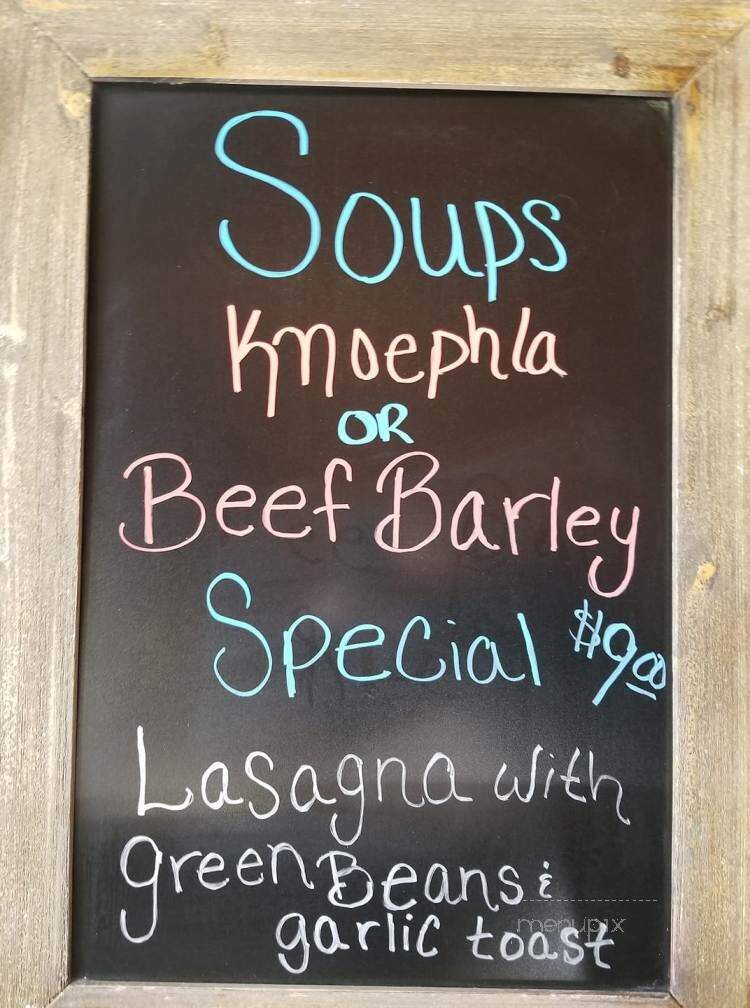 Soups
Knoephla
OR
Beef Barley
Special $9.00
Lasagna with
green Beans &
garlic toast
menupix